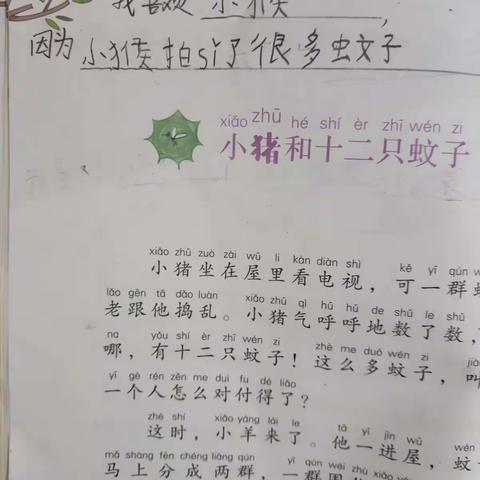 我喜欢 小猴
因为 小猴拍sǐ了很多虫文子
xiǎo zhū hé shí èr zhī wén zi
小猪和十二只蚊子
xiǎo zhū zuò zài wū li kàn diàn shì kě yī qún
小猪坐在屋里看电视，可一群
lǎo gēn tā dǎo luàn xiǎo zhū qì hū hū de shǔ le shǔ
老跟他捣乱。小猪气呼呼地数了数，
na yǒu shí èr zhī wén zi zhè me duō wén zi
哪，有十二只蚊子！这么多蚊子，叫
yī gè rén zěn me duì fu dé liǎo
一个人怎么对付得了？
zhè shí xiǎo yáng lái le tā yī jìn wū wén
这时，小羊来了。他一进屋，蚊
mǎ shàng fēn chéng liǎng qún yī qún wéi zhù xiǎo
马上分成两群，一群围